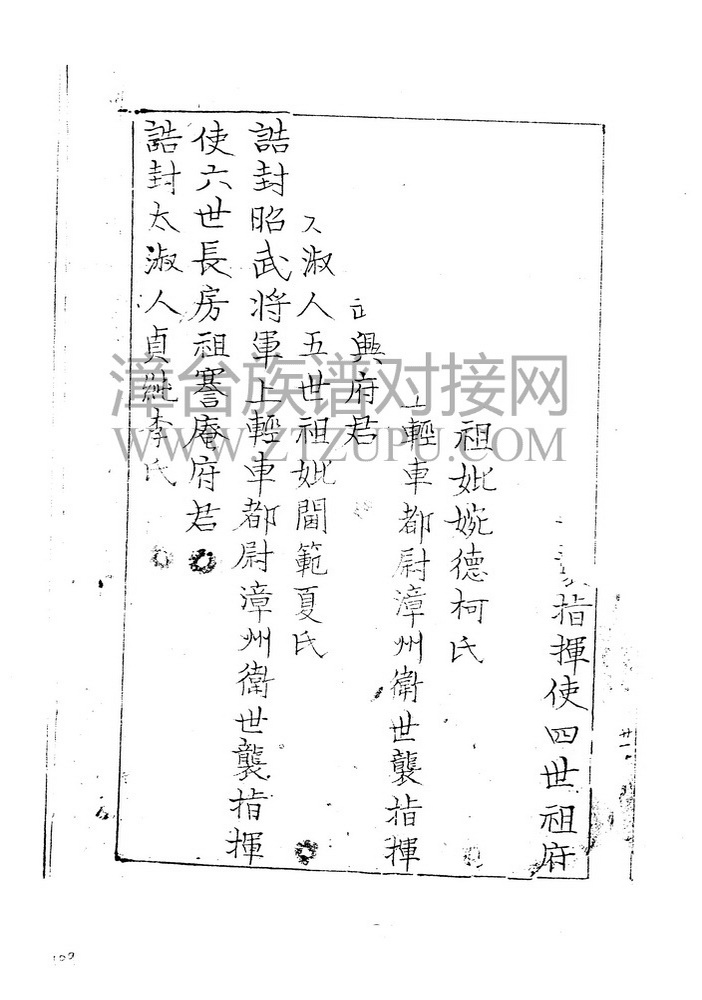 指揮使四世祖府
祖妣婉德柯氏
輕車都尉漳州衛世襲指揮
興府君
淑人五世祖妣閫範夏氏
誥封昭武将軍上輕車都尉漳州衛世襲指揮
使六世長房祖謇庵府君
誥封太淑人貞純李氏
漳台族谱对接网
WWW.ZTZUPU.COM
廿一